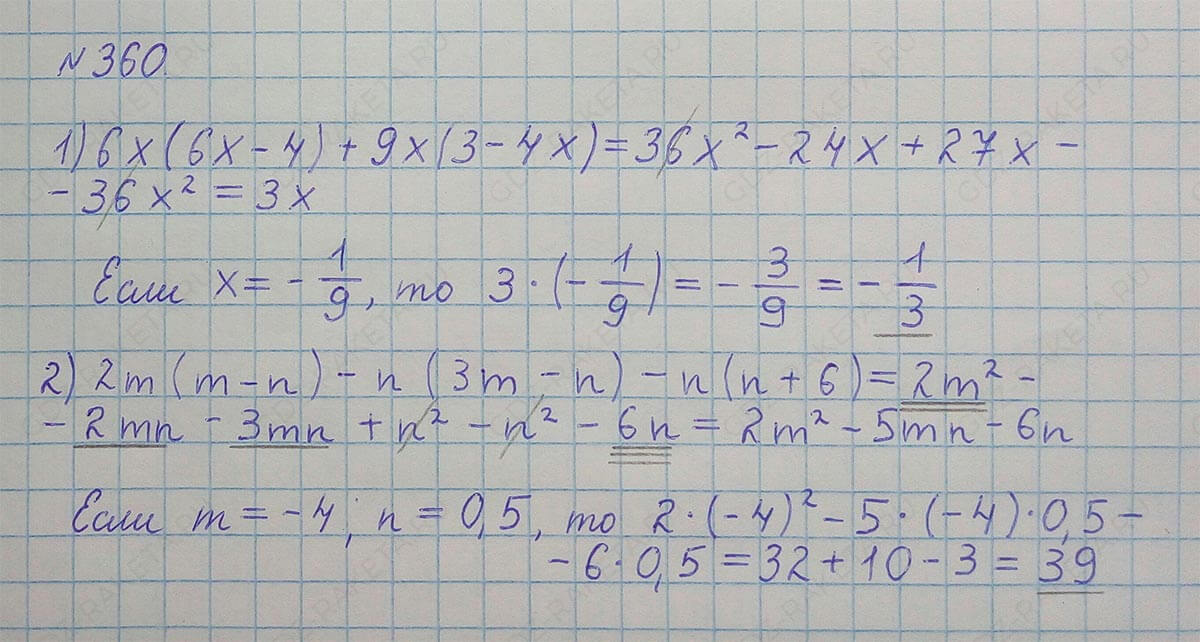 N 360
1) 6x(6x - 4) + 9x(3 - 4x) = 36x² - 24x + 27x -
- 36x² = 3x
Если x = - 1/9, то 3 · (- 1/9) = - 3/9 = - 1/3
2) 2m(m - n) - n(3m - n) - n(n + 6) = 2m² -
- 2mn - 3mn + n² - n² - 6n = 2m² - 5mn - 6n
Если m = -4; n = 0,5, то 2 · (-4)² - 5 · (-4) · 0,5 -
- 6 · 0,5 = 32 + 10 - 3 = 39